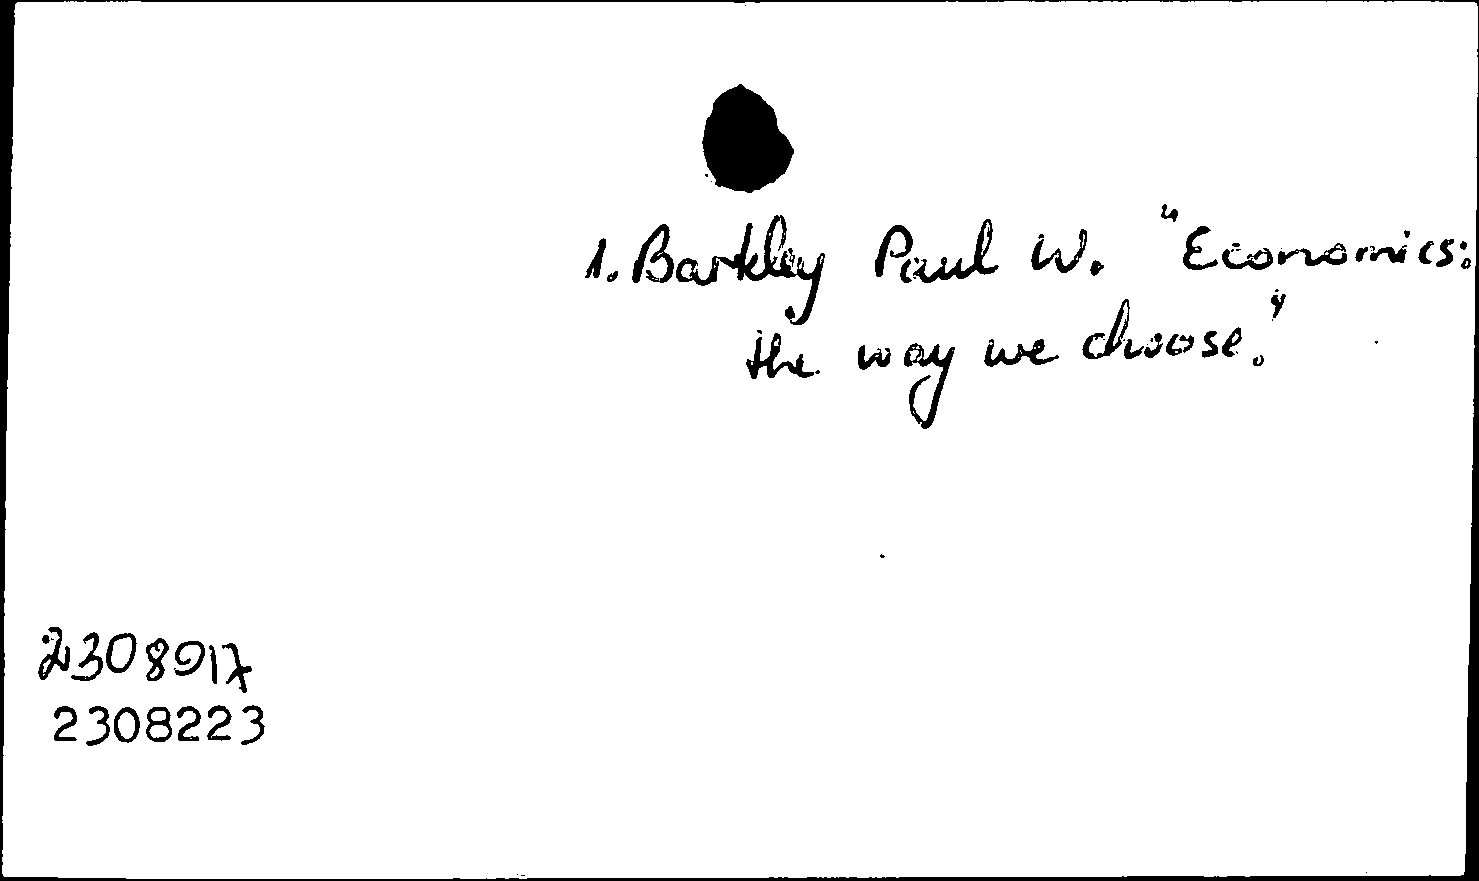 1. Barkley Paul W. "Economics:
the way we choose."
2308917
2308223